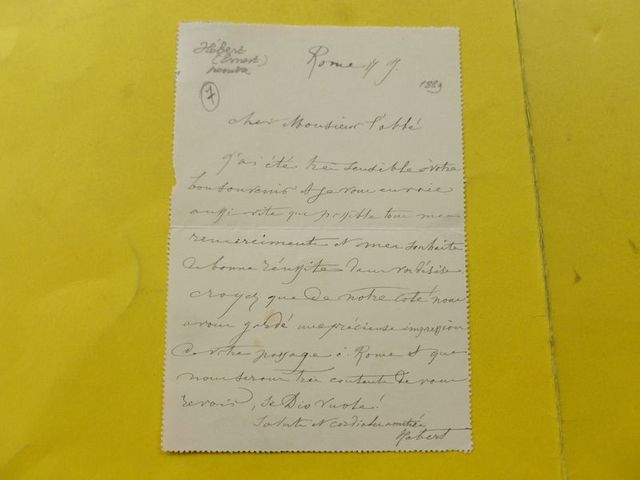 Hébert
(Ernest)
peintre
7
Rome
1889
cher Monsieur l'abbé
J'ai été très sensible à votre
bon souvenir et je vous envoie
aussi vite que possible tous mes
remerciments et mes souhaits
de bonne réussite dans vos désirs
croyez que de notre coté nous
avons gardé une précieuse impression
de votre passage à Rome et que
nous serons très contents de vous
revoir, se Dio vuole!
Salute et cordiales amitiés
Hébert